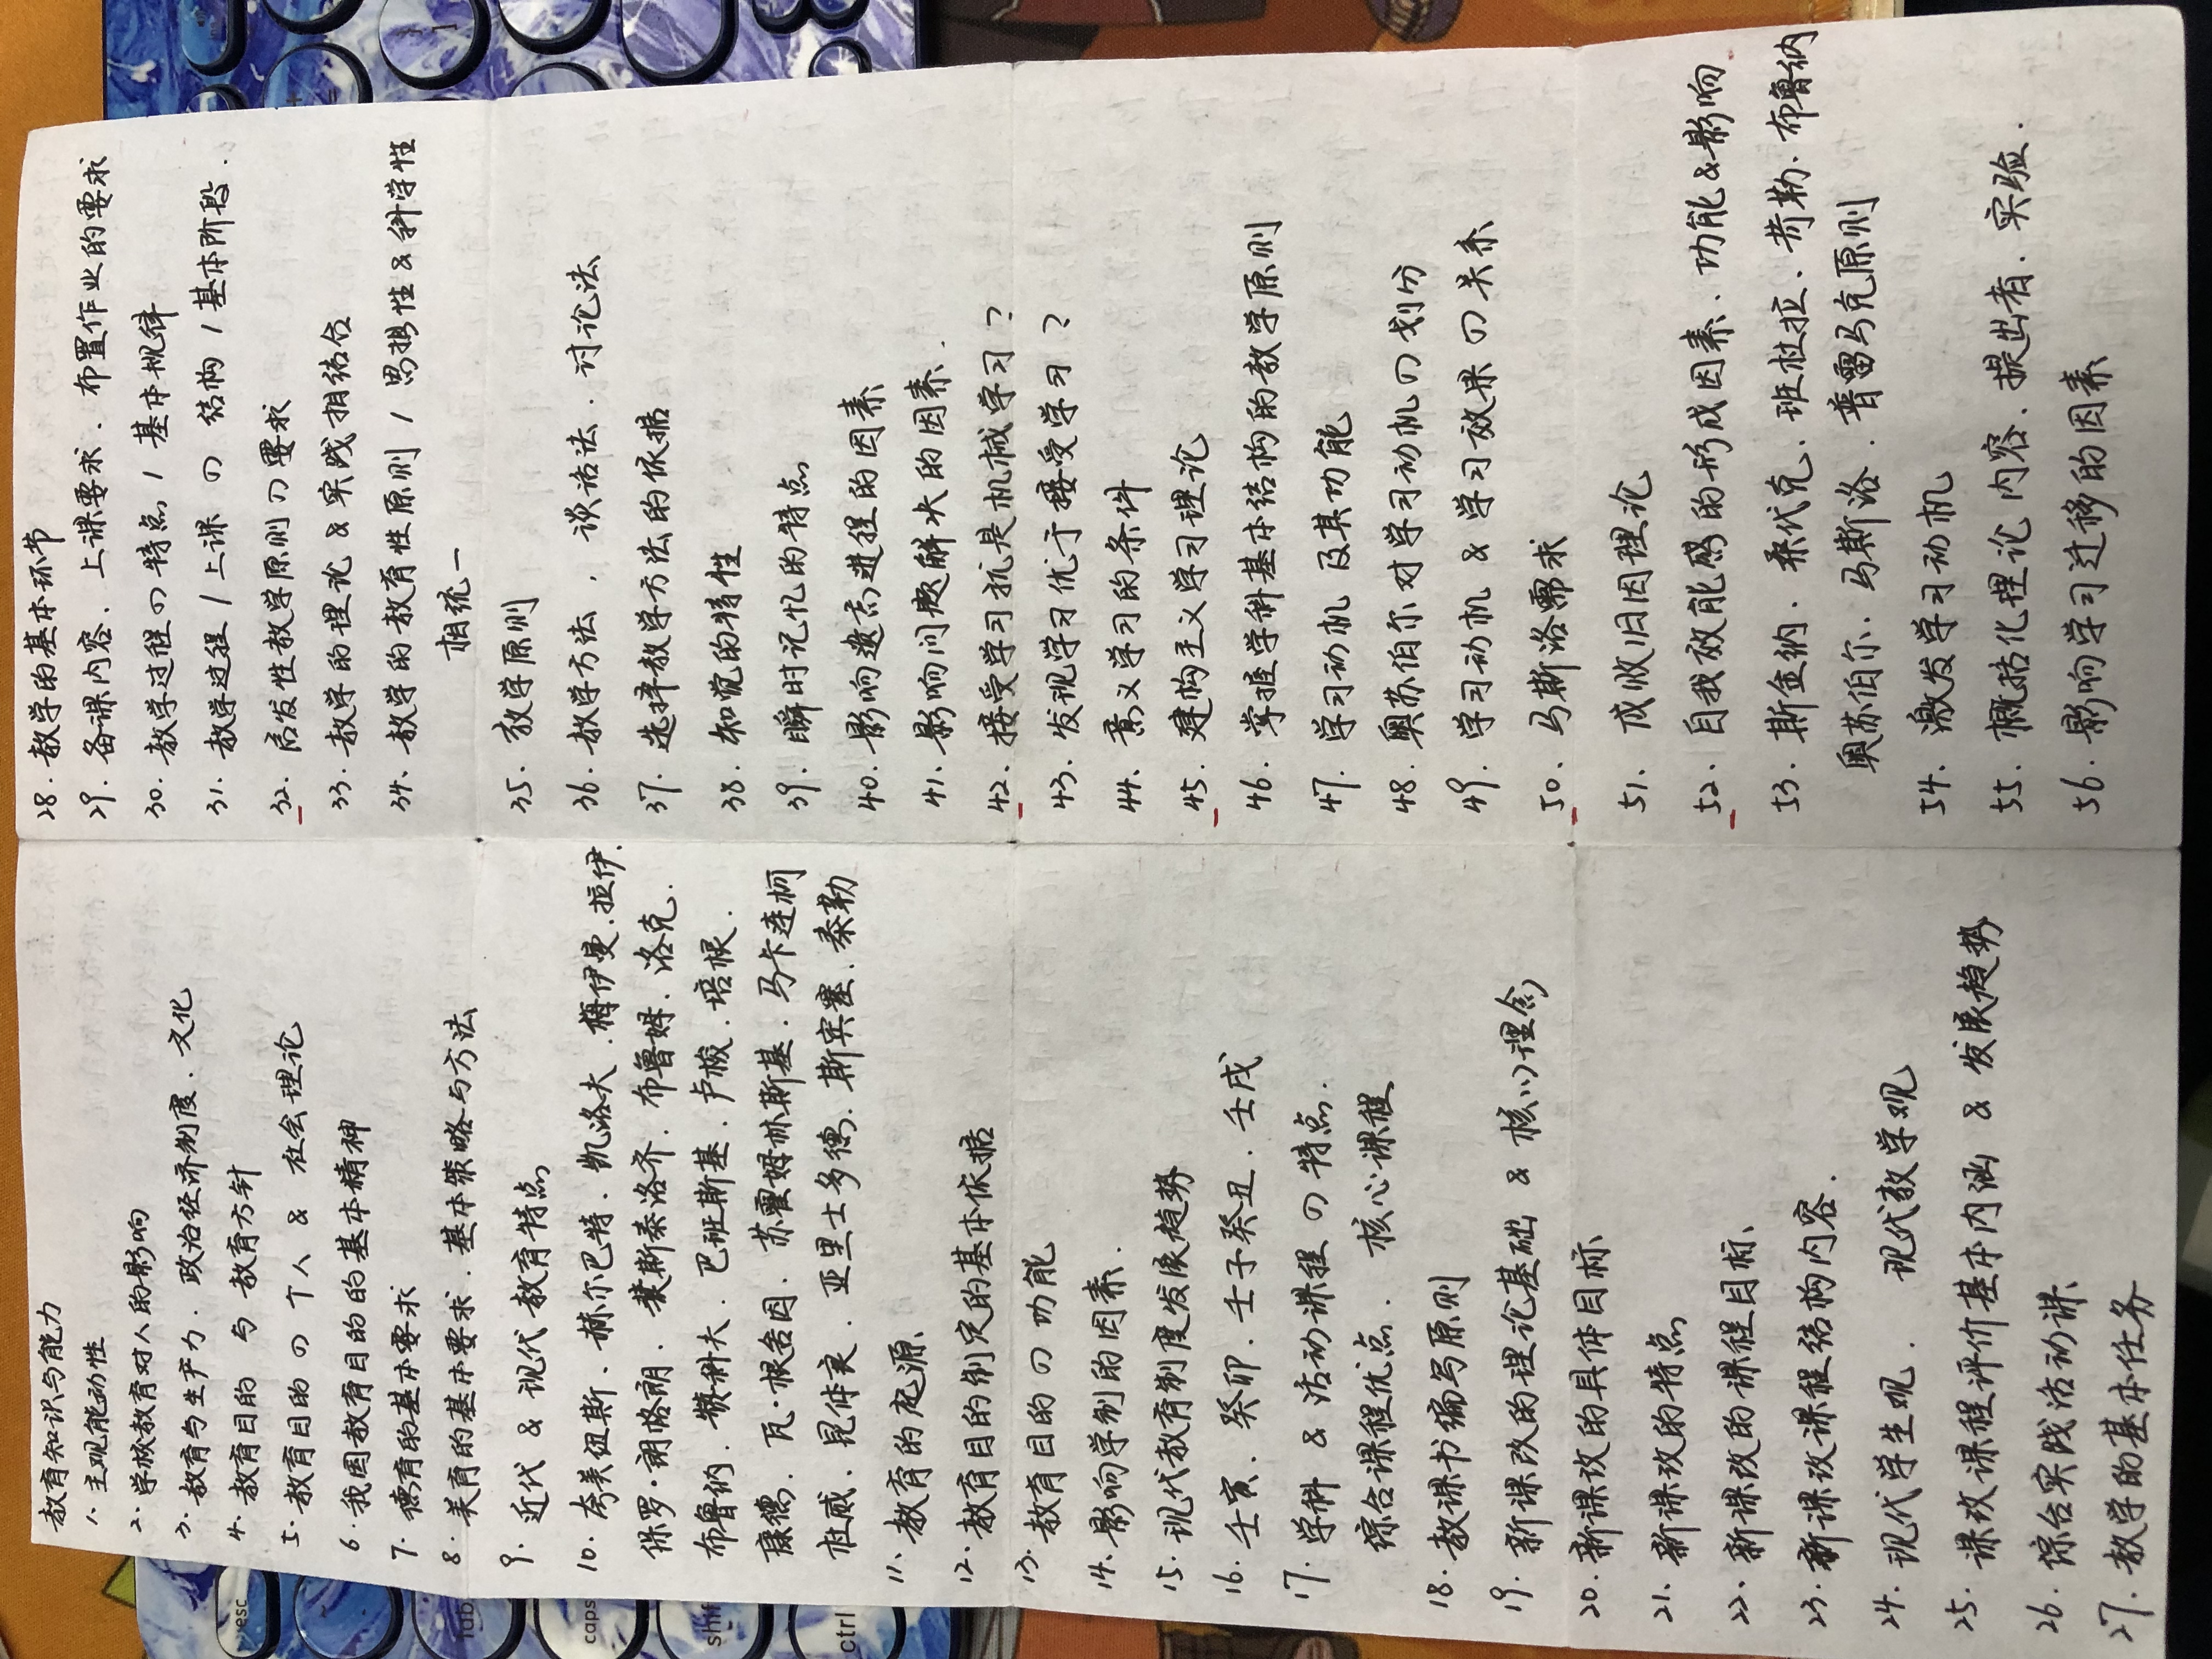 教育知识与能力
1. 主观能动性
2. 学校教育对人的影响
3. 教育与生产力、政治经济制度、文化
4. 教育目的与教育方针
5. 教育目的の个人 & 社会理论
6. 我国教育目的的基本精神
7. 德育的基本要求
8. 美育的基本要求、基本策略与方法
9. 近代 & 现代教育特点
10. 夸美纽斯、赫尔巴特、凯洛夫、梅伊曼、拉伊、
保罗·朗格朗、裴斯泰洛齐、布鲁姆、洛克、
布鲁纳、赞科夫、巴班斯基、卢梭、培根、
康德、瓦·根舍因、苏霍姆林斯基、马卡连柯
杜威、昆体良、亚里士多德、斯宾塞、泰勒
11. 教育的起源
12. 教育目的制定的基本依据
13. 教育目的の功能
14. 影响学制的因素.
15. 现代教育制度发展趋势
16. 壬寅、癸卯、壬子癸丑、壬戌
17. 学科 & 活动课程の特点.
综合课程优点、核心课程
18. 教课书编写原则
19. 新课改的理论基础 & 核心理念
20. 新课改的具体目标
21. 新课改的特点
22. 新课改的课程目标、
23. 新课改课程结构内容.
24. 现代学生观、现代教学观
25. 课改课程评价基本内涵 & 发展趋势
26. 综合实践活动课
27. 教学的基本任务
28. 教学的基本环节
29. 备课内容、上课要求、布置作业的要求
30. 教学过程の特点 / 基本规律
31. 教学过程 / 上课の结构 / 基本阶段.
32. 启发性教学原则の要求
33. 教学的理论 & 实践相结合
34. 教学的教育性原则 / 思想性 & 科学性
相统一
35. 教学原则
36. 教学方法、谈话法、讨论法
37. 选择教学方法的依据
38. 知觉的特性
39. 瞬时记忆的特点
40. 影响遗忘进程的因素
41. 影响问题解决的因素.
42. 接受学习就是机械学习?
43. 发现学习优于接受学习?
44. 意义学习的条件
45. 建构主义学习理论
46. 掌握学科基本结构的教学原则
47. 学习动机及其功能
48. 奥苏伯尔对学习动机の划分
49. 学习动机 & 学习效果の关系
50. 马斯洛需求
51. 成败归因理论
52. 自我效能感的形成因素、功能&影响
53. 斯金纳、桑代克、班杜拉、苛勒、布鲁纳
奥苏伯尔、马斯洛、普雷马克原则
54. 激发学习动机
55. 概括化理论内容、提出者、实验.
56. 影响学习迁移的因素
esc
tab
caps
shift
ctrl